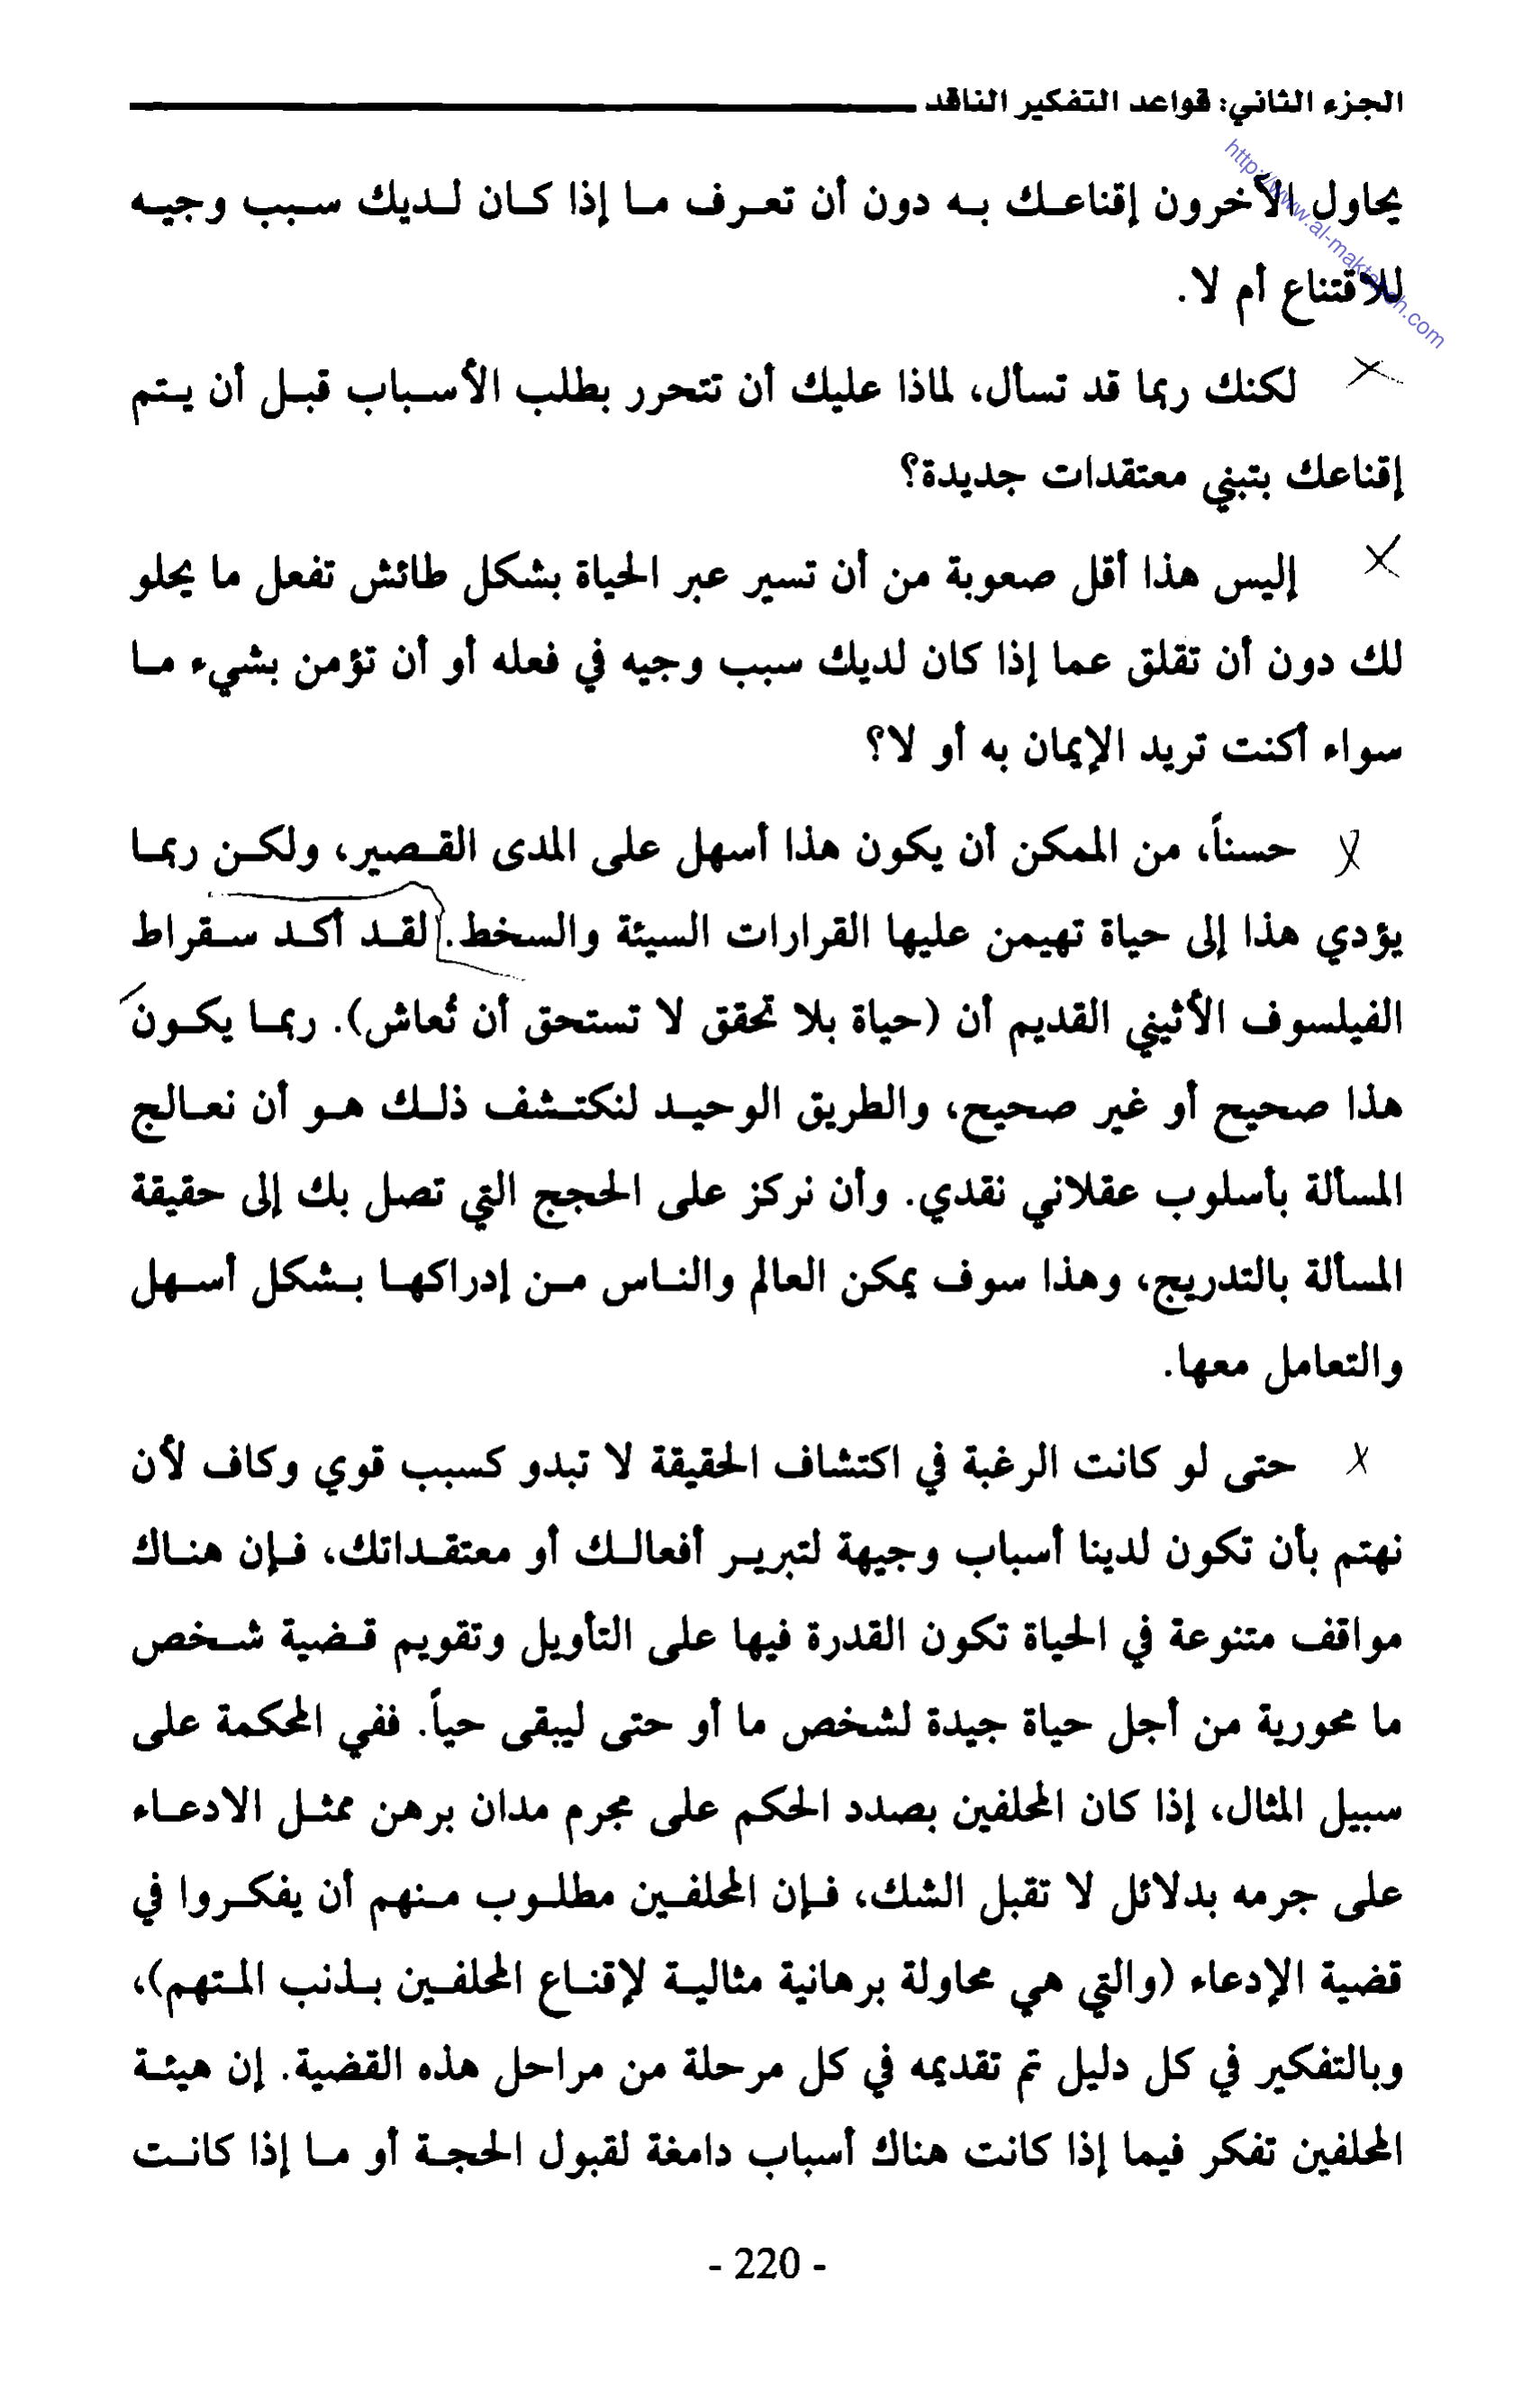 الجزء الثاني: قواعد التفكير الناقد
http://www.al-maktabeh.com
يحاول الآخرون إقناعك به دون أن تعرف ما إذا كان لديك سبب وجيه
للاقتناع أم لا.
لكنك ربما قد تسأل، لماذا عليك أن تتحرر بطلب الأسباب قبل أن يتم
إقناعك بتبني معتقدات جديدة؟
إليس هذا أقل صعوبة من أن تسير عبر الحياة بشكل طائش تفعل ما يحلو
لك دون أن تقلق عما إذا كان لديك سبب وجيه في فعله أو أن تؤمن بشيء ما
سواء أكنت تريد الإيمان به أو لا؟
حسناً، من الممكن أن يكون هذا أسهل على المدى القصير، ولكن ربما
يؤدي هذا إلى حياة تهيمن عليها القرارات السيئة والسخط. لقد أكد سقراط
الفيلسوف الأثيني القديم أن (حياة بلا تحقق لا تستحق أن تُعاش). ربما يكون
هذا صحيح أو غير صحيح، والطريق الوحيد لنكتشف ذلك هو أن نعالج
المسألة بأسلوب عقلاني نقدي. وأن نركز على الحجج التي تصل بك إلى حقيقة
المسألة بالتدريج، وهذا سوف يمكن العالم والناس من إدراكها بشكل أسهل
والتعامل معها.
حتى لو كانت الرغبة في اكتشاف الحقيقة لا تبدو كسبب قوي وكاف لأن
نهتم بأن تكون لدينا أسباب وجيهة لتبرير أفعالك أو معتقداتك، فإن هناك
مواقف متنوعة في الحياة تكون القدرة فيها على التأويل وتقويم قضية شخص
ما محورية من أجل حياة جيدة لشخص ما أو حتى ليبقى حياً. ففي المحكمة على
سبيل المثال، إذا كان المحلفين بصدد الحكم على مجرم مدان برهن ممثل الادعاء
على جرمه بدلائل لا تقبل الشك، فإن المحلفين مطلوب منهم أن يفكروا في
قضية الإدعاء (والتي هي محاولة برهانية مثالية لإقناع المحلفين بذنب المتهم)،
وبالتفكير في كل دليل تم تقديمه في كل مرحلة من مراحل هذه القضية. إن هيئة
المحلفين تفكر فيما إذا كانت هناك أسباب دامغة لقبول الحجة أو ما إذا كانت
- 220 -